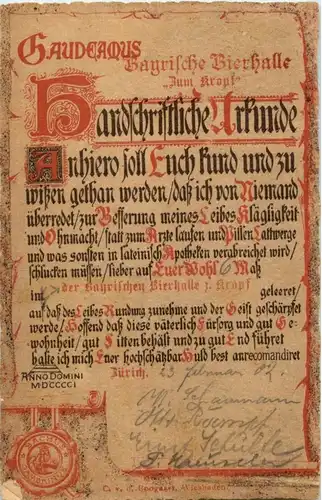 GAUDEAMUS
Bayrische Bierhalle
„Zum Kropf"
Handschriftliche Urkunde
Anhiero soll Euch kund und zu
wißen gethan werden/daß ich von Niemand
überredet/zur Besserung meines Leibes Klägligkeit
und Ohnmacht/statt zum Arzte laufen und Pillen Lattwerge
und was sonsten in lateinisch Apotheken verabreichet wird/
schlucken müssen/lieber auf Euer Wohl 6 Maß
im der Bayrischen Bierhalle z. Kropf geleeret/
auf daß des Leibes Rundung zunehme und der Geist geschärpfet
werde/Hoffend daß diese väterlich Fürsorg und gut Ge-
wohnheit/gut Sitten behält und zu gut End führet
halte ich mich Euer hochschätzbar Huld best anrecomandiret
ANNO DOMINI
MDCCCCI
Zürich, 23 Februar 02.
C. v. d. Boogaart, Wiesbaden